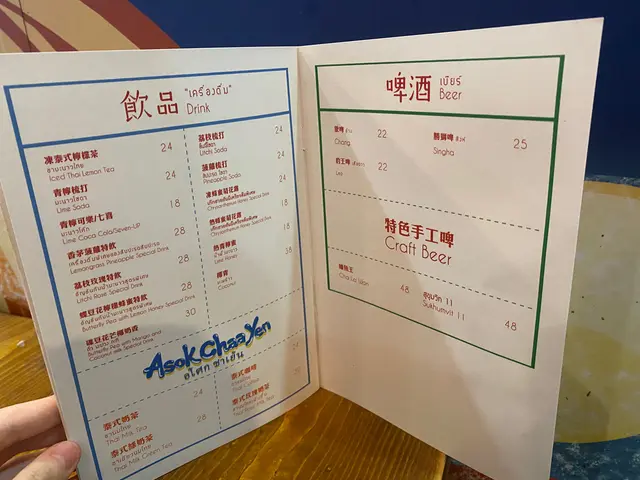 飲品 "เครื่องดื่ม"
Drink
凍泰式檸檬茶 24
ชามะนาวไทย
Iced Thai Lemon Tea
青檸梳打 24
มะนาวโซดา
Lime Soda
青檸可樂/七喜 18
มะนาวโค้ก
Lime Coca Cola/Seven-UP
香茅菠蘿特飲 28
Lemongrass Pineapple Special Drink
荔枝玫瑰特飲 28
Litchi Rose Special Drink
蝶豆花檸檬蜂蜜特飲 28
Butterfly Pea with Lemon Honey Special Drink
蝶豆花芒椰奶香 30
Butterfly Pea with Mango and
Coconut milk Special Drink
荔枝梳打 24
ลิ้นจี่โซดา
Litchi Soda
菠蘿梳打 24
สับปะรด โซดา
Pineapple Soda
凍蜂蜜菊花露 24
Chrysanthemum Honey Special Drink
熱蜂蜜菊花露 18
Chrysanthemum Honey Special Drink
熱青檸蜜 18
Lime Honey
椰青 38
มะพร้าว
Coconut
Asok Chaa Yen
อโศก ชาเย็น
泰式奶茶 24
ชานมไทย
Thai Milk Tea
泰式綠奶茶 28
Thai Milk Cream Tea
泰式咖啡
泰式玫瑰奶茶
啤酒 เบียร์
Beer
象啤 ช้าง 22
Chang
勝獅啤 สิงห์ 25
Singha
豹王啤 22
Leo
特色手工啤
Craft Beer
48
Cha La Wan
สุขุมวิท 11 48
Sukhumvit 11